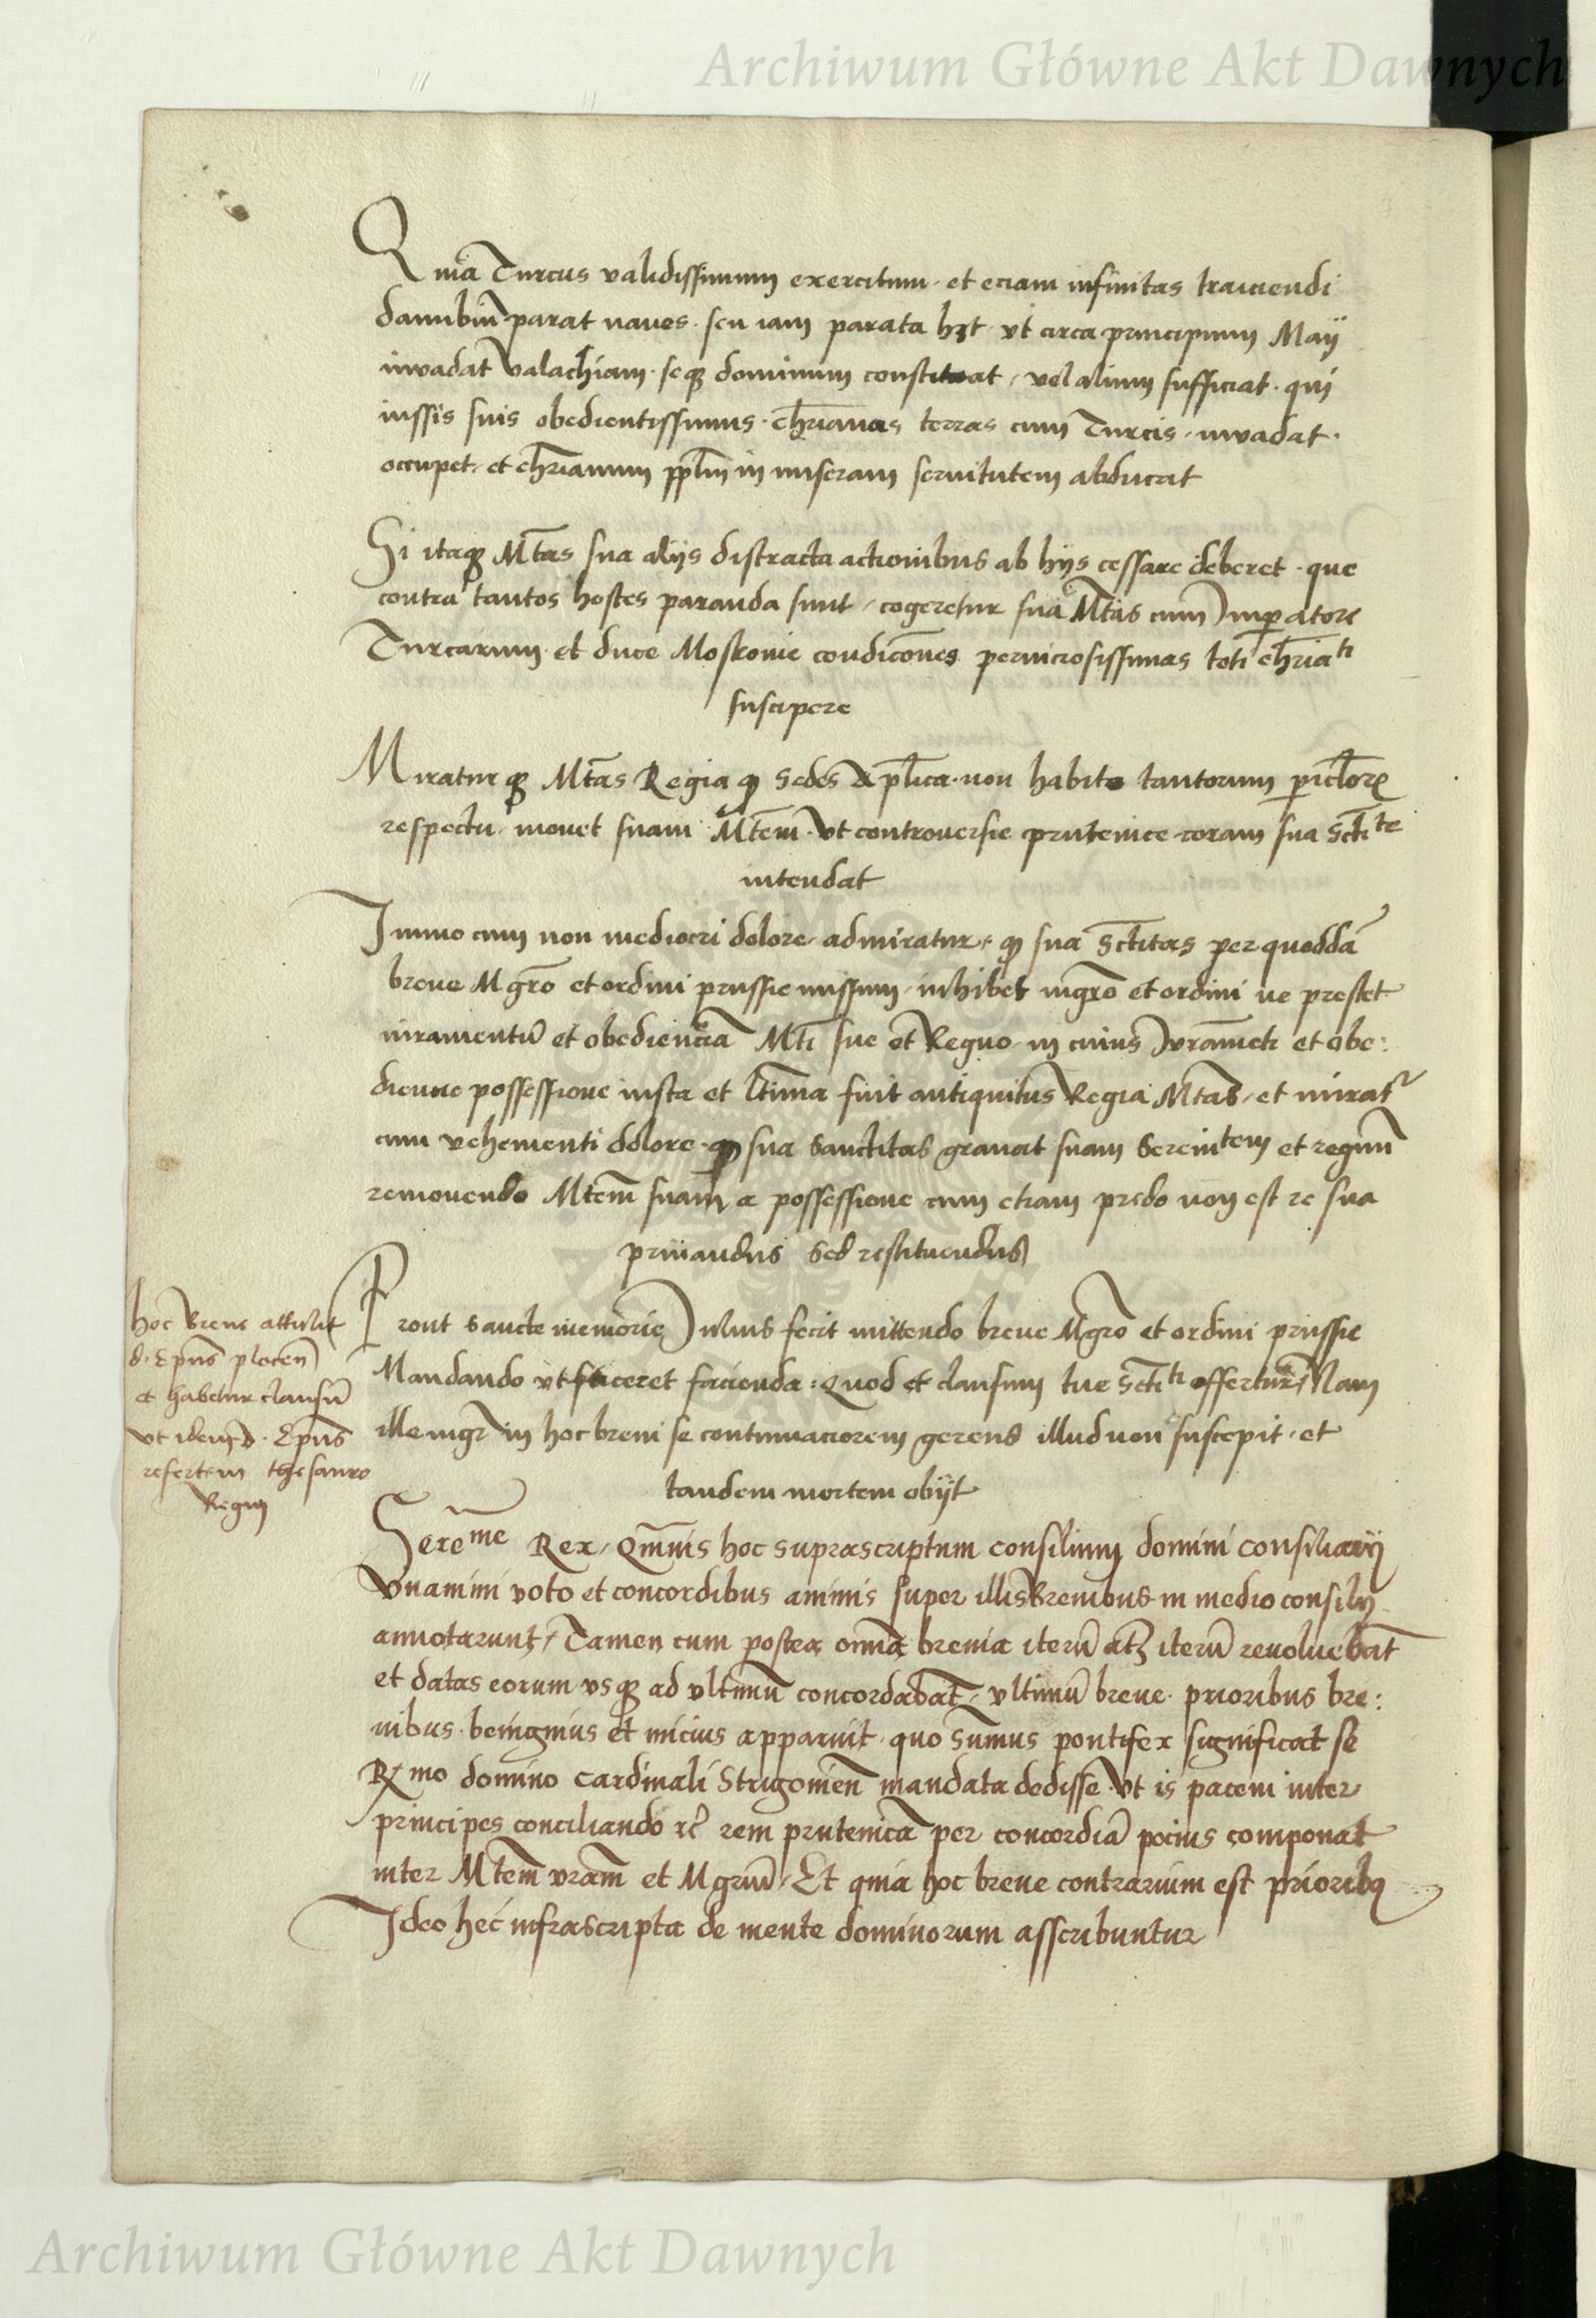 Archiwum Główne Akt Dawnych
Quia Turcus validissimum exercitum et eciam infinitas traiiciendi
danubiũ parat naues seu iam parata hȝt vt circa principium Maÿ
invadat Valachiam seqꝫ dominum constituat, vel alium sufficiat qui
iussis suis obedientissimus chr̃ianas terras cum Turcis, invadat
occupet, et chr̃ianum pplm̃ in miseram seruitutem abducat
Si itaqꝫ Mt̃as sua alijs distracta actionibus ab hijs cessare deberet que
contra tantos hostes paranda sunt, cogeretur sua Mt̃as cum Imꝑatore
Turcarum et duce Moskouie condicõnes perniciosissimas toti chr̃iati
suscipere
Miratur qꝫ Mt̃as Regia ꝙ Sedes Apl̃ica non habito tantorum ꝑicl̃oꝝ
respectu mouet suam Mt̃em vt controuersie prutenice coram sua Scti͂te
intendat
Immo cum non mediocri dolore admiratur, ꝙ sua Sct̃itas per quoddã
breue Mgr̃o et ordini prussie missum, inhibet mgr̃o et ordini ne prestet
iuramentũ et obedienciã Mt̃i sue et Regno in cuius Iurãmeti et obe:
diencie possessione iusta et lt̃ima fuit antiquitus Regia Mt̃as, et mirat͛
cum vehementi dolore ꝙ sua Sanctitas grauat suam Serenitem et regnũ
remouendo Mt̃em suam a possessione cum etiam predo non est re sua
priuandus Sed restituendus
hoc breue attulit
d. Ep̃us plocen̄
et habetur clausũ
vt idem d. Ep̃us
refert in thesauro
Regni
Prout Sancte memorie Iulius fecit mittendo breue Mgr̃o et ordini prussie
Mandando vt faceret facienda: Quod et clausum tue Sct̃iti offertur, Nam
ille mgr̃ in hoc breui se contumaciorem gerens illud non suscepit, et
tandem mortem obijt
Sereme Rex, Qm̃uis hoc suprascriptum consilium domini consiliarij
Vnanimi voto et concordibus animis super illis Breuibus in medio consilij
annotarunt, Tamen cum postea om̃ia breuia iterũ atqꝫ iterũ reuoluebãt
et datas eorum vsqꝫ ad vltimũ concordabãt, vltimũ breue prioribus bre:
uibus benignius et micius apparuit quo Sum̃us pontifex significat se
Rmo domino Cardinali Strigonien̄ mandata dedisse vt is pacem inter
principes conciliando ꝛc̃ rem prutenicã per concordiã pocius componat
inter Mt̃em vr̃am et Mgrũ, Et quia hoc breue contrarium est prioribꝫ
Ideo hec infrascripta de mente dominorum asscribuntur
Archiwum Główne Akt Dawnych